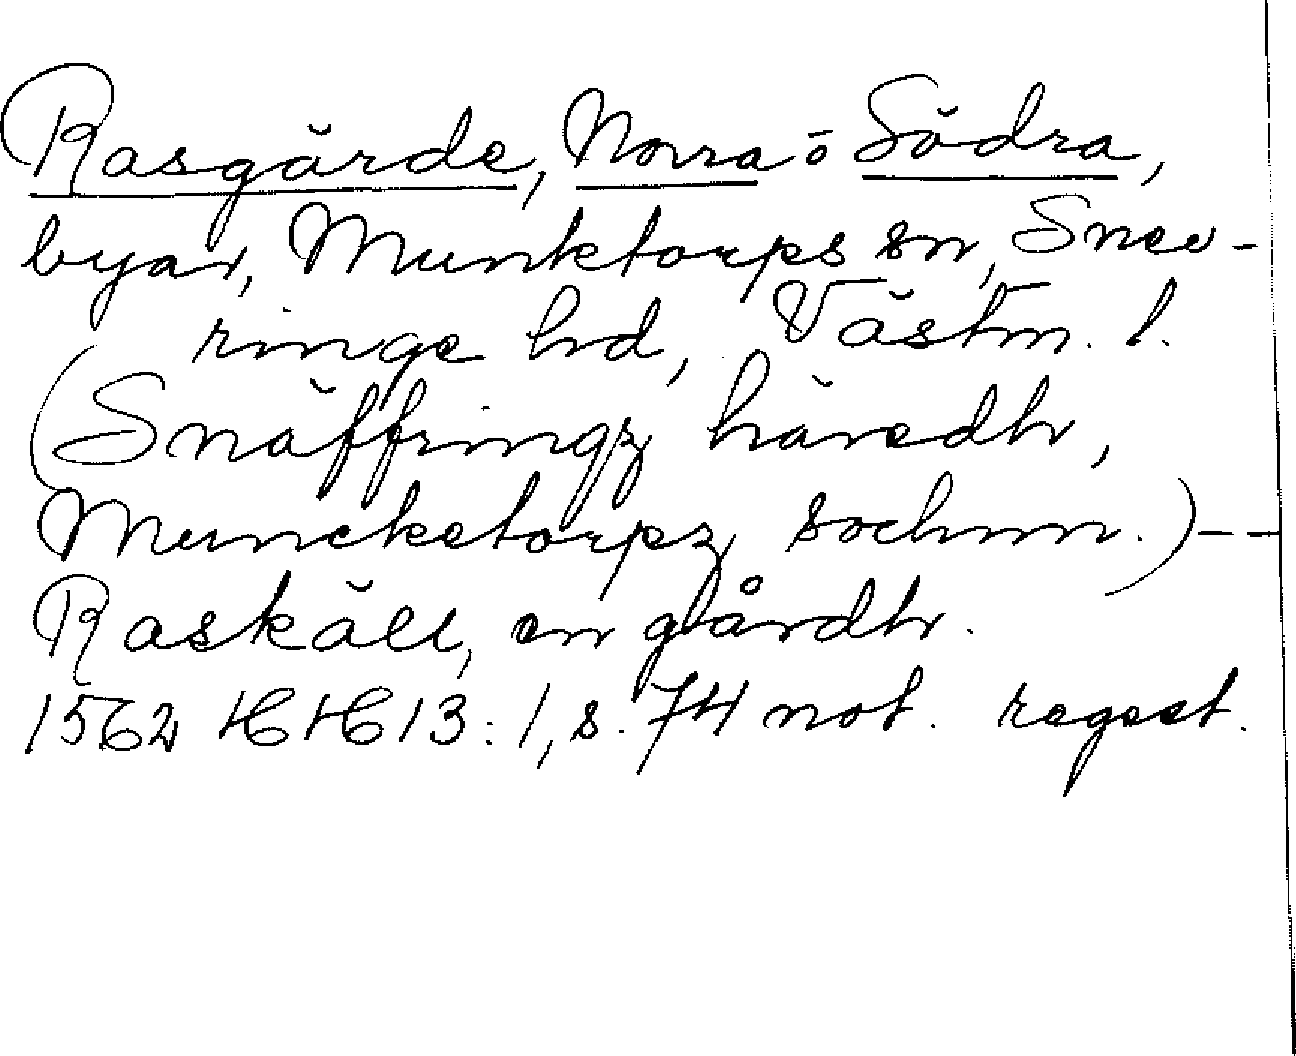 Rasgärde, Norra o Södra,
byar, Munktorps sn, Snev-
ringe hd, Västm. l.
(Snäffringz häredh,
Muncketorpz sochnn.) - -
Raskäll, en gårdh.
1562 HH 13:1, s. 74 not. regest.